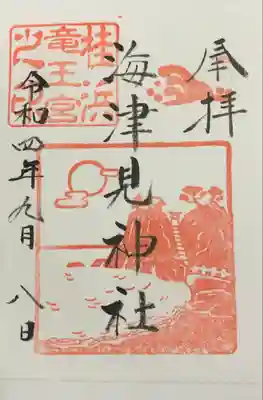 奉拝
海津見神社
令和四年九月八日
桂浜
竜王宮
之印